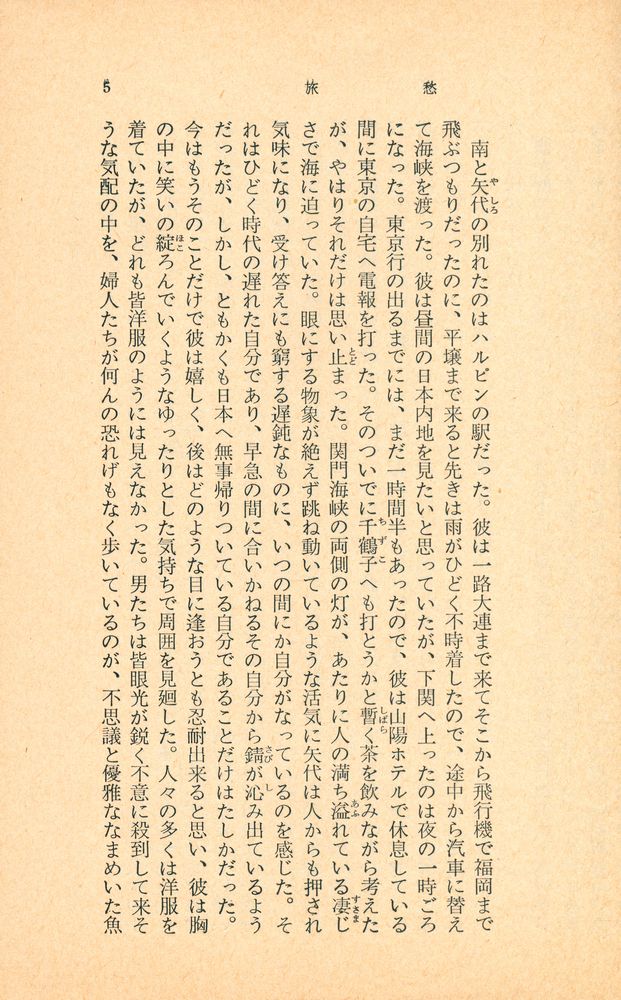 旅愁
5
南と矢代の別れたのはハルピンの駅だった。彼は一路大連まで来てそこから飛行機で福岡まで
飛ぶつもりだったのに、平壌まで来ると先きは雨がひどく不時着したので、途中から汽車に替え
て海峡を渡った。彼は昼間の日本内地を見たいと思っていたが、下関へ上ったのは夜の一時ごろ
になった。東京行の出るまでには、まだ一時間半もあったので、彼は山陽ホテルで休息している
間に東京の自宅へ電報を打った。そのついでに千鶴子へも打とうかと暫く茶を飲みながら考えた
が、やはりそれだけは思い止まった。関門海峡の両側の灯が、あたりに人の満ち溢れている凄じ
さで海に迫っていた。眼にする物象が絶えず跳ね動いているような活気に矢代は人からも押され
気味になり、受け答えにも窮する遅鈍なものに、いつの間にか自分がなっているのを感じた。そ
れはひどく時代の遅れた自分であり、早急の間に合いかねるその自分から錆が沁み出ているよう
だったが、しかし、ともかくも日本へ無事帰りついている自分であることだけはたしかだった。
今はもうそのことだけで彼は嬉しく、後はどのような目に逢おうとも忍耐出来ると思い、彼は胸
の中に笑いの綻ろんでいくようなゆったりとした気持ちで周囲を見廻した。人々の多くは洋服を
着ていたが、どれも皆洋服のようには見えなかった。男たちは皆眼光が鋭く不意に殺到して来そ
うな気配の中を、婦人たちが何んの恐れげもなく歩いているのが、不思議と優雅ななまめいた魚